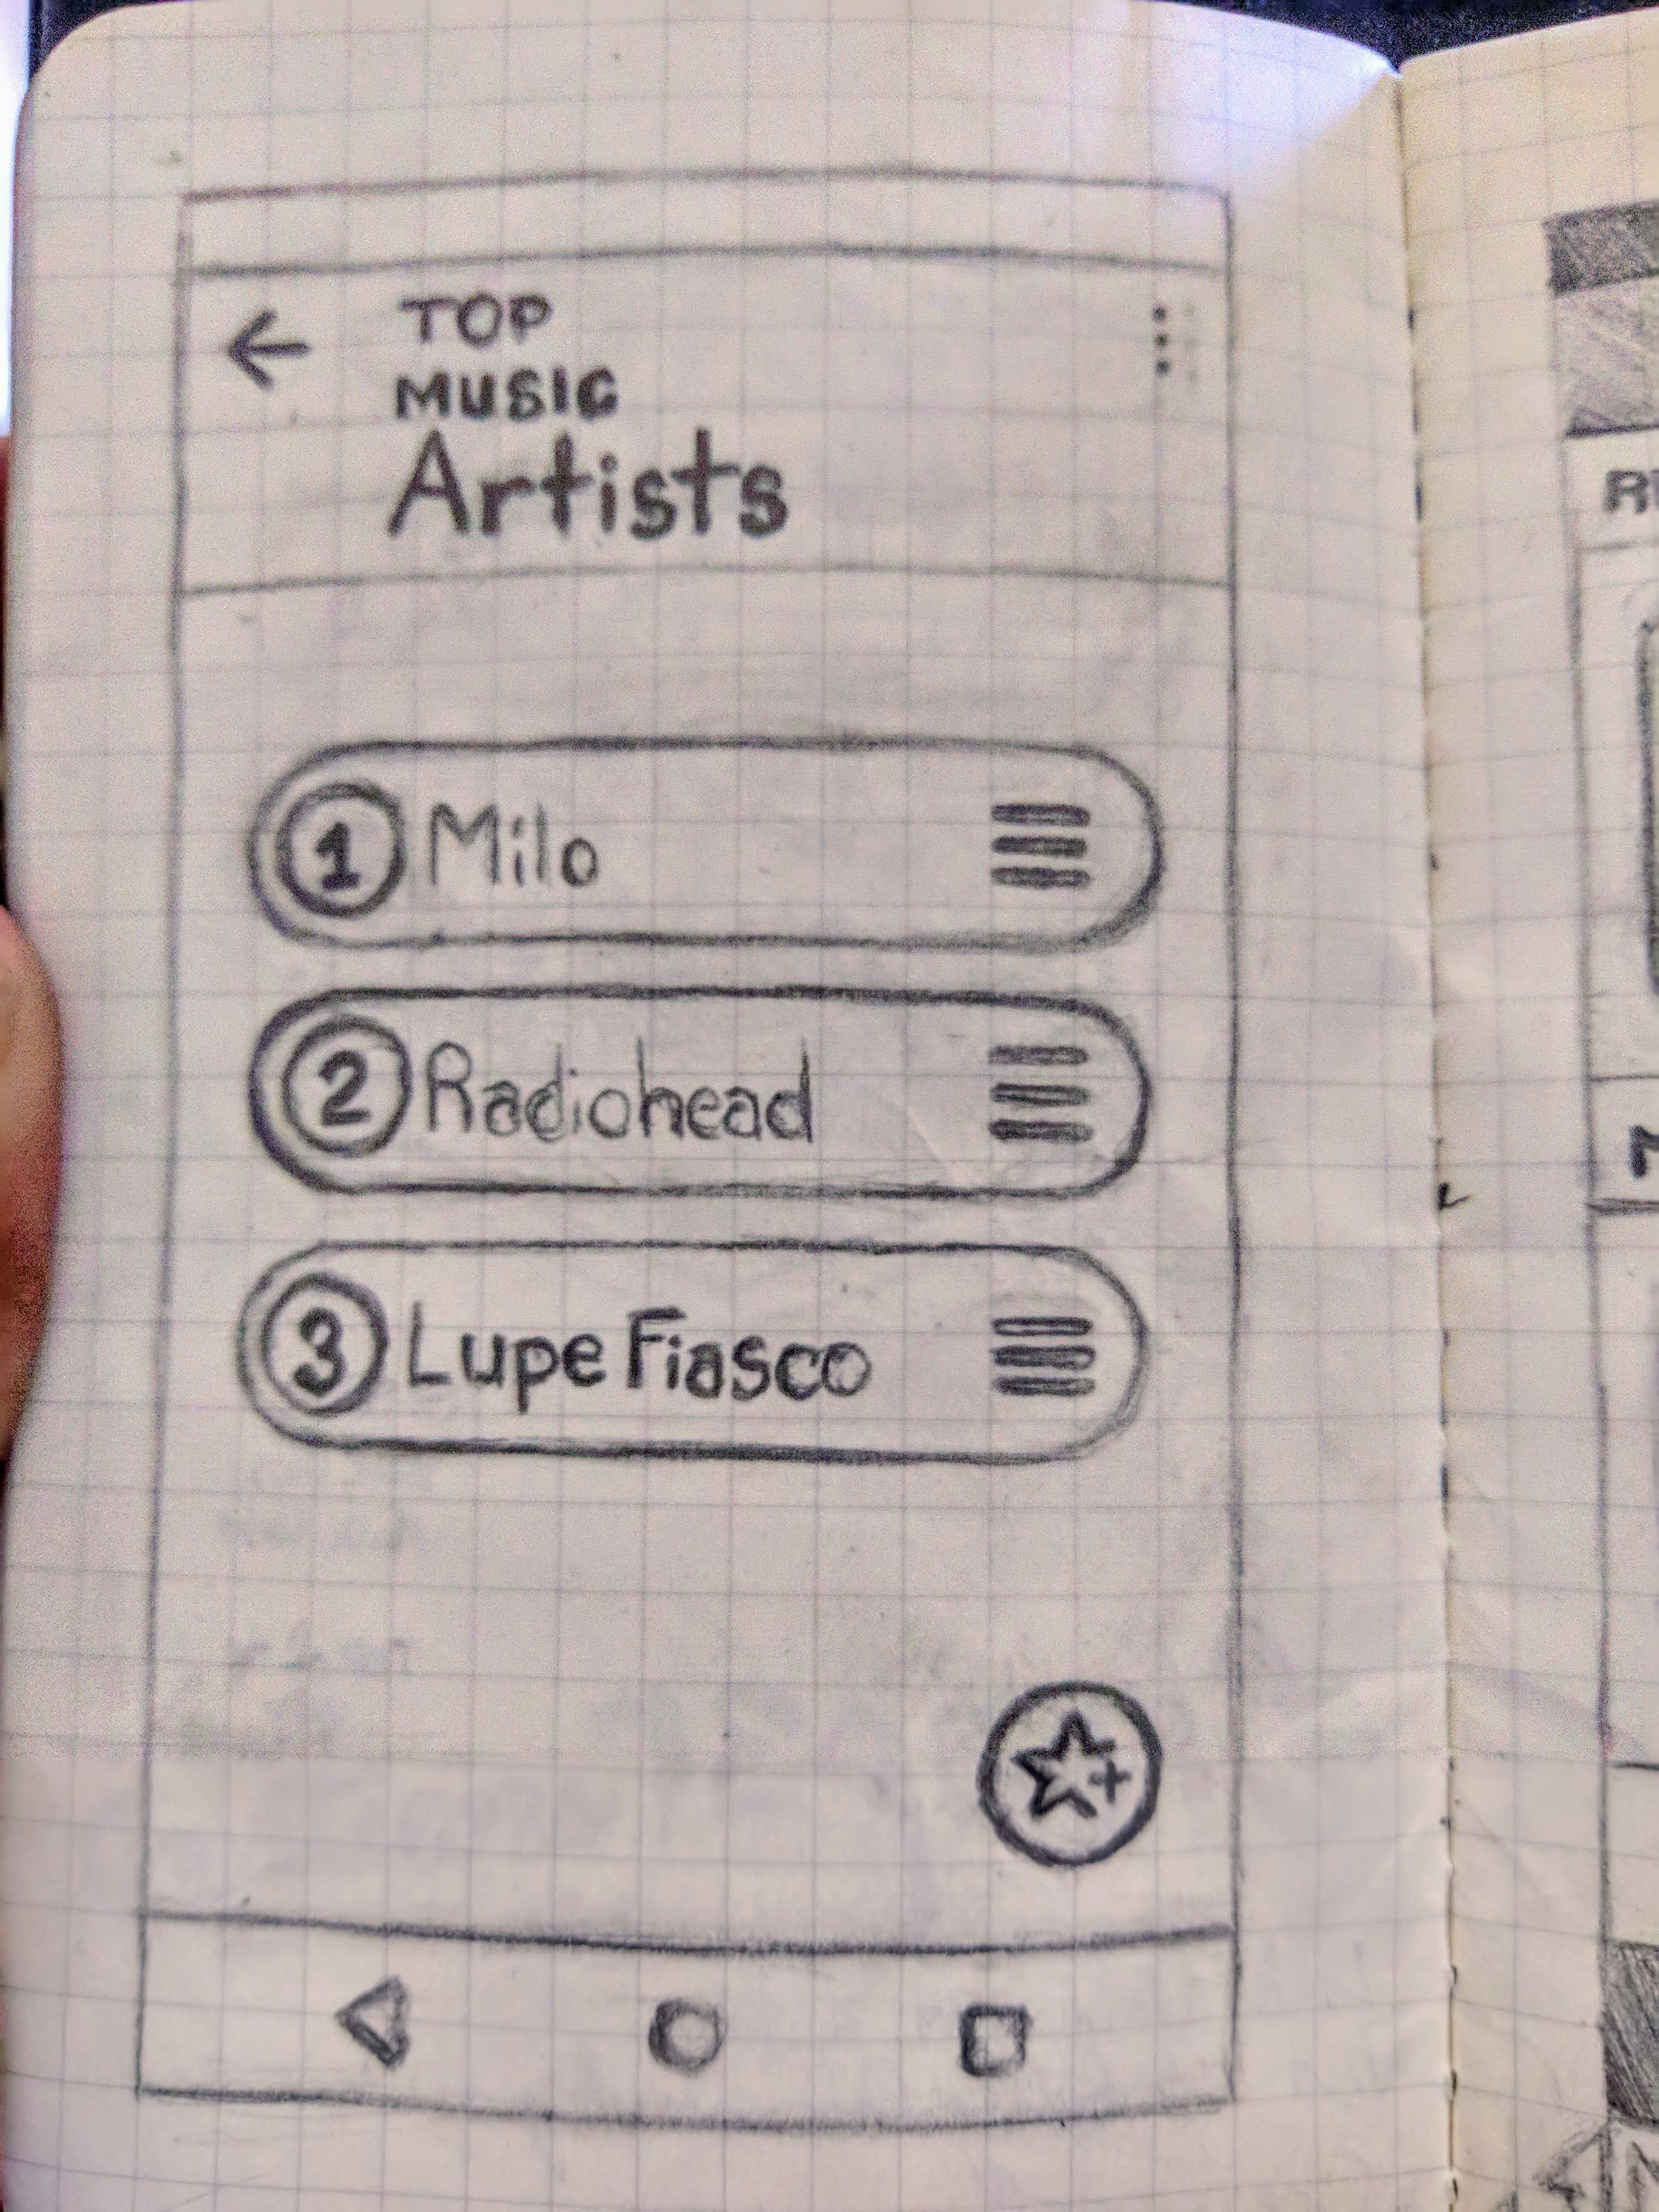 TOP
MUSIC
Artists
1 Milo
2 Radiohead
3 Lupe Fiasco